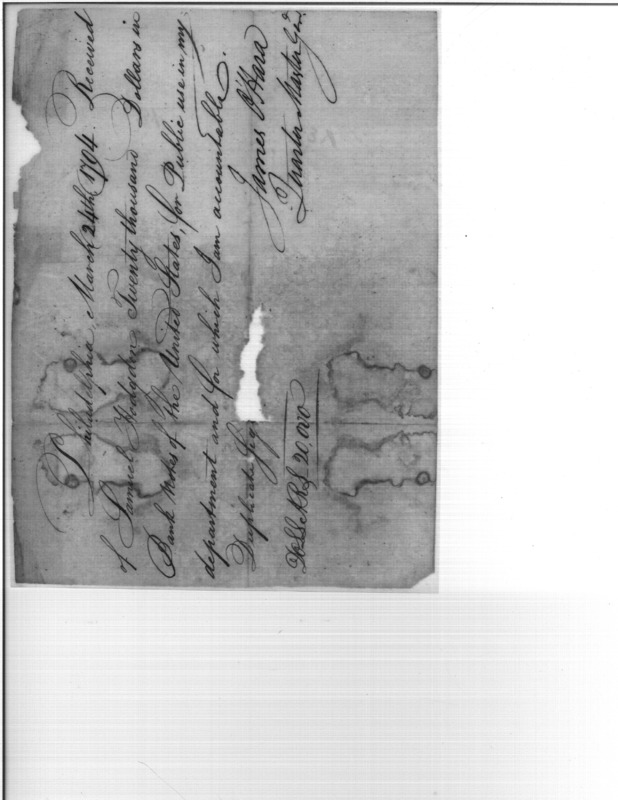 Philadelphia, March 24th 1794. Received
of Samuel Hodgdon Twenty thousand Dollars in
Bank Notes of the United States, for Public use in my
department and for which I am accountable.
Duplicate James O'Hara
Quarter Master Genl.
DOLLARS 20,000